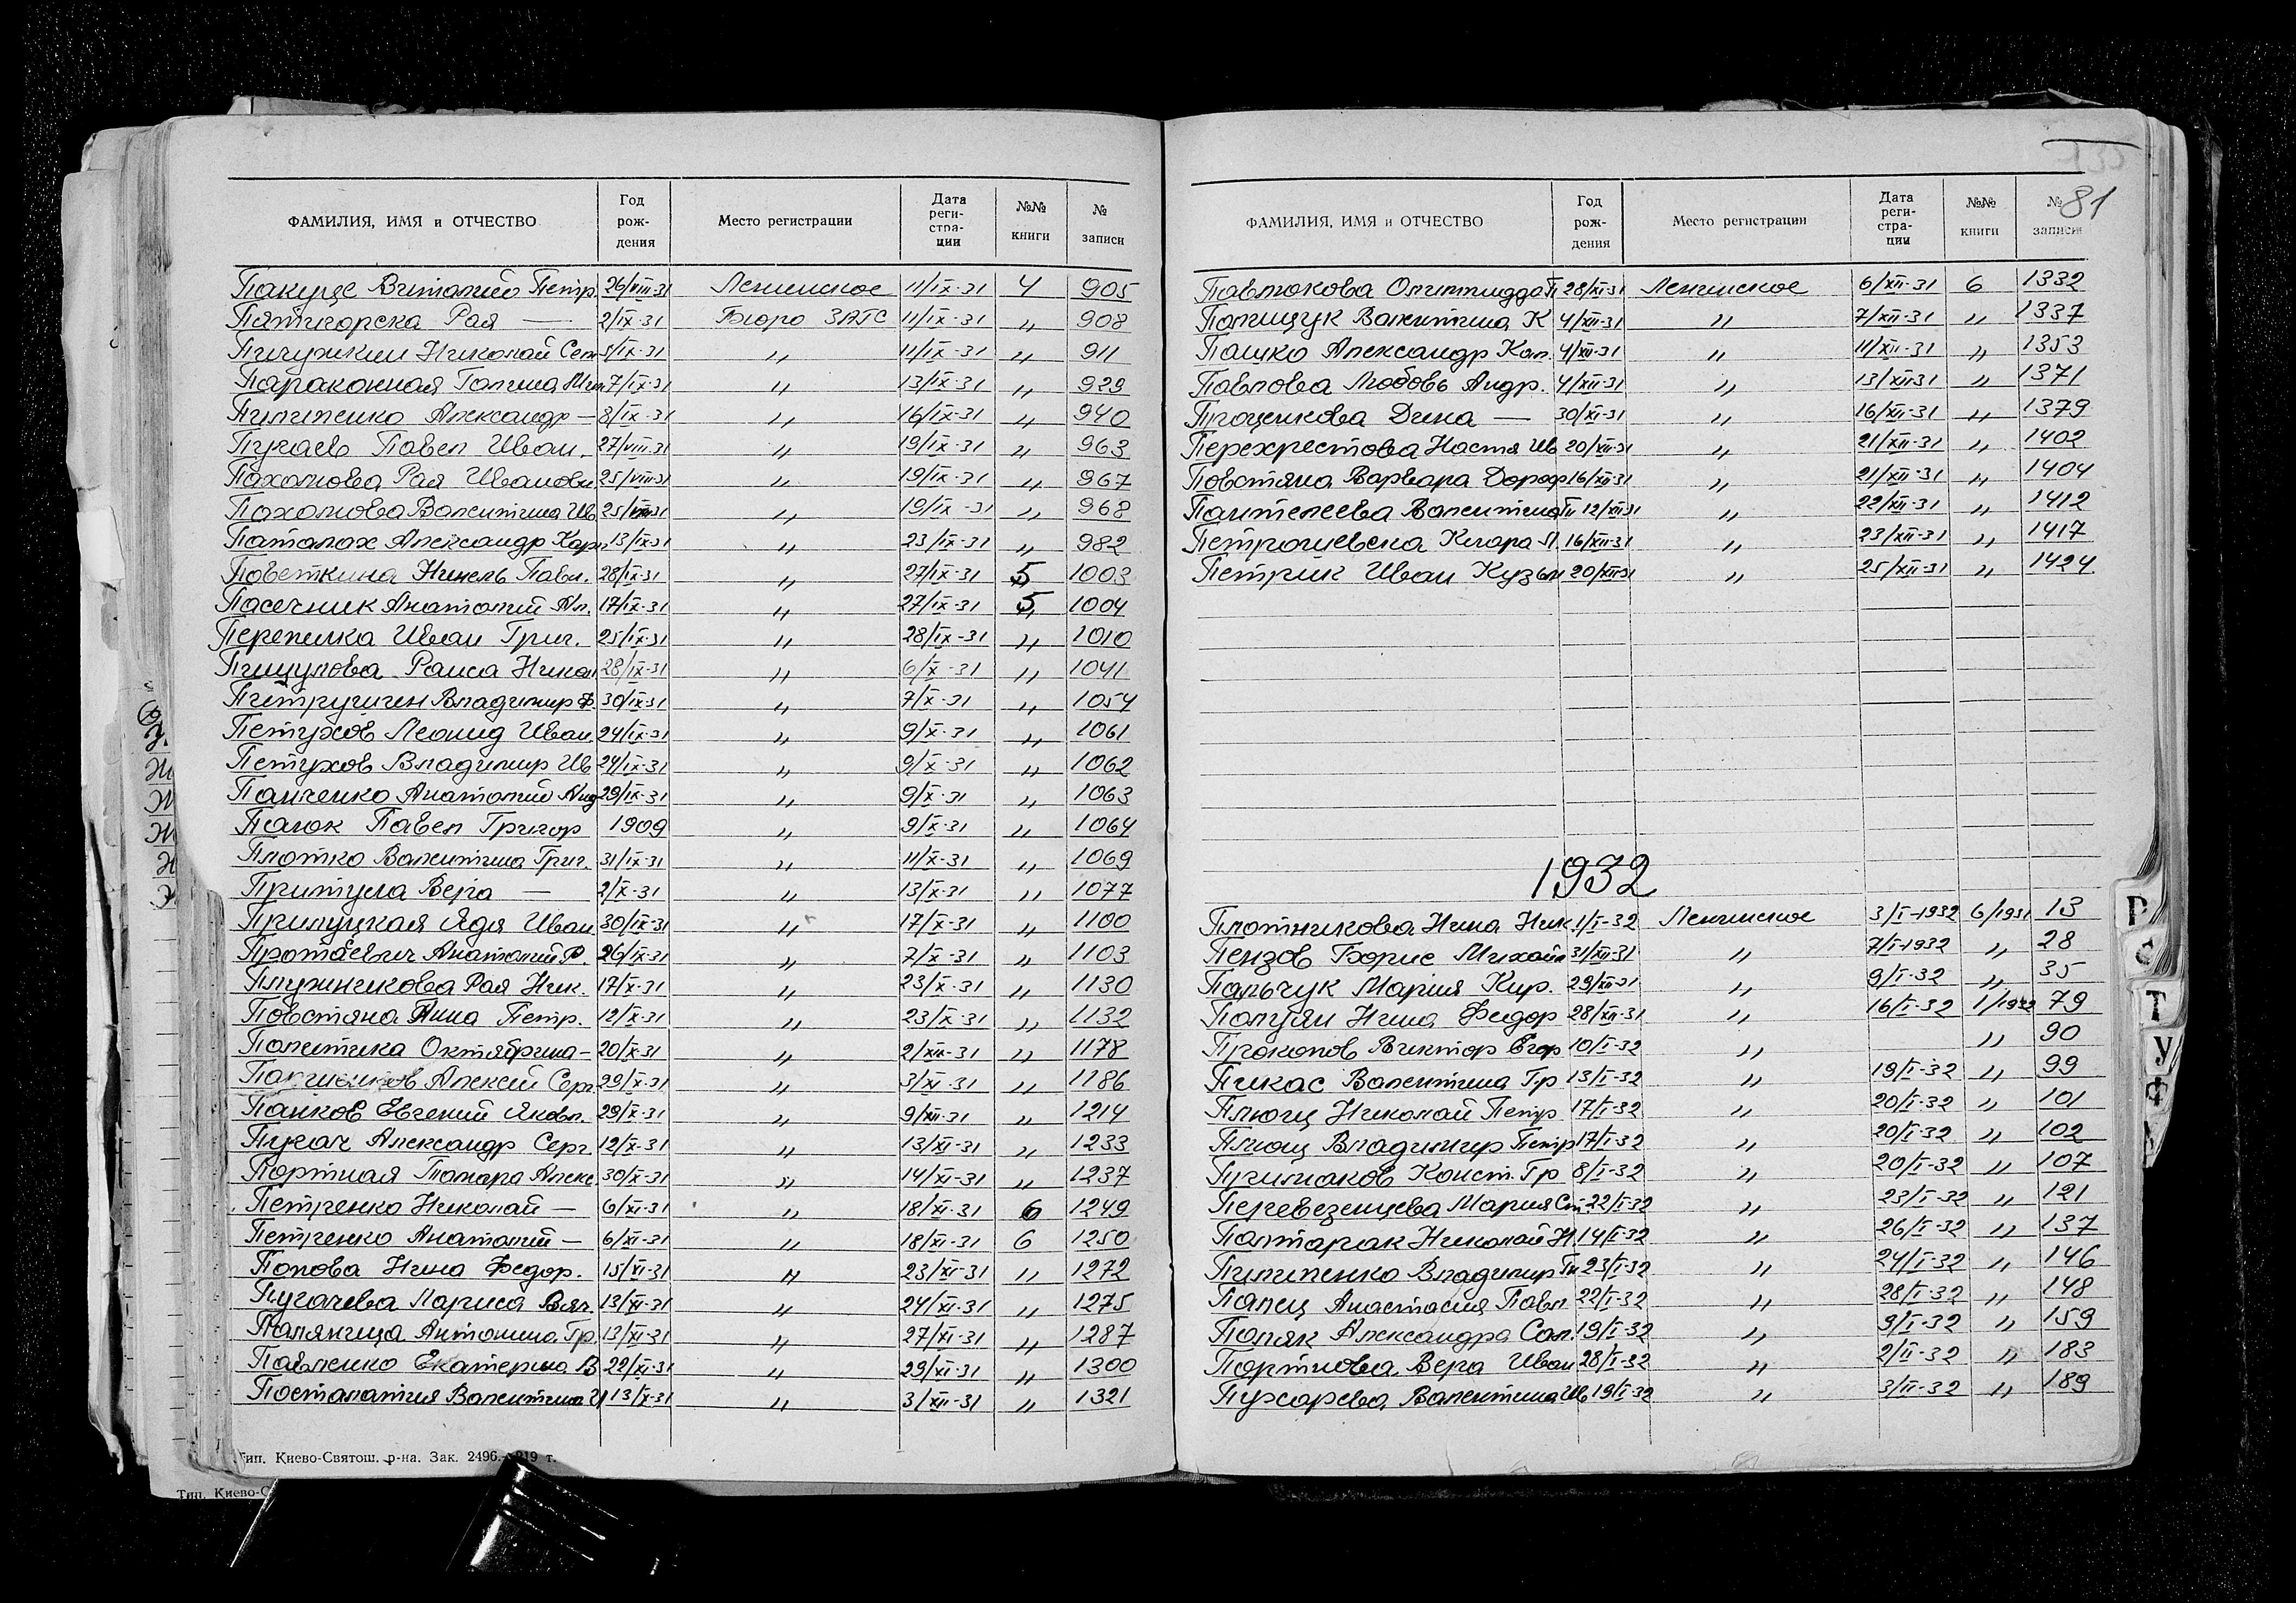 81
ФАМИЛИЯ, ИМЯ и ОТЧЕСТВО Год рождения Место регистрации Дата регистрации №№ книги № записи
Пакуце Виталий Петр. 26/VIII-31 Ленинское 11/IX-31 4 905
Пятигорска Рая — 2/IX-31 Бюро ЗАГС 11/IX-31 „ 908
Пичужкин Николай Сем 5/IX-31 „ 11/IX-31 „ 911
Параконная Галина Мих 7/IX-31 „ 13/IX-31 „ 929
Пилипенко Александр — 8/IX-31 „ 16/IX-31 „ 940
Пугаев Павел Иван. 27/VIII-31 „ 19/IX-31 „ 963
Пахомова Рая Ивановн 25/VIII-31 „ 19/IX-31 „ 967
Пахомова Валентина Ив 25/VIII-31 „ 19/IX-31 „ 968
Паталах Александр Карп 13/IX-31 „ 23/IX-31 „ 982
Поветкина Нинель Павл. 28/IX-31 „ 27/IX-31 5 1003
Пасечник Анатолий Ал. 17/IX-31 „ 27/IX-31 5 1004
Перепилка Иван Григ. 25/IX-31 „ 28/IX-31 „ 1010
Пищулова Раиса Никол 28/IX-31 „ 6/X-31 „ 1041
Петрушен Владимир Ф. 30/IX-31 „ 7/X-31 „ 1054
Петухов Леонид Иван 24/IX-31 „ 9/X-31 „ 1061
Петухов Владимир Ив 24/IX-31 „ 9/X-31 „ 1062
Панченко Анатолий Анд 29/IX-31 „ 9/X-31 „ 1063
Палюк Павел Григор 1909 „ 9/X-31 „ 1064
Плотко Валентина Григ. 31/IX-31 „ 11/X-31 „ 1069
Притула Вера — 2/X-31 „ 13/X-31 „ 1077
Прилуцкая Ядя Иван 30/IX-31 „ 17/X-31 „ 1100
Протасевич Анатолий Р. 26/IX-31 „ 7/X-31 „ 1103
Плужникова Рая Ник. 17/X-31 „ 23/X-31 „ 1130
Повстяна Анна Петр. 12/X-31 „ 23/X-31 „ 1132
Политика Октябрина — 20/X-31 „ 2/XII-31 „ 1178
Алексей Серг. 29/X-31 „ 3/XI-31 „ 1186
Панков Евгений Яковл. 29/X-31 „ 9/XII-31 „ 1214
Пугач Александр Серг. 12/X-31 „ 13/XI-31 „ 1233
Портная Тамара Алекс. 30/X-31 „ 14/XI-31 „ 1237
Петренко Николай — 6/XI-31 „ 18/XI-31 6 1249
Петренко Анатолий — 6/XI-31 „ 18/XI-31 6 1250
Попова Нина Федор. 15/XI-31 „ 23/XI-31 „ 1272
Пугачева Лариса Вяч. 13/XI-31 „ 24/XI-31 „ 1275
Паляница Антонина Гр. 13/XI-31 „ 27/XI-31 „ 1287
Павленко Екатерина В 22/XI-31 „ 29/XI-31 „ 1300
Посталатия Валентина И 13/X-31 „ 3/XII-31 „ 1321
Тип. Киево-Святош. р-на. Зак. 2496.
Тип. Киево-С
ФАМИЛИЯ, ИМЯ и ОТЧЕСТВО Год рождения Место регистрации Дата регистрации №№ книги № записи
Павлюкова Олимпиада П 28/XI-31 Ленинское 6/XII-31 6 1332
Полищук Валентина К 4/XII-31 „ 7/XII-31 „ 1337
Пашко Александр Кал. 4/XII-31 „ 11/XII-31 „ 1353
Павлова Любовь Андр. 4/XII-31 „ 13/XII-31 „ 1371
Проценкова Дина — 30/XI-31 „ 16/XII-31 „ 1379
Перехрестова Настя Ив 20/XII-31 „ 21/XII-31 „ 1402
Повстяна Варвара Дороф 16/XII-31 „ 21/XII-31 „ 1404
Пантелеева Валентина П 12/XII-31 „ 22/XII-31 „ 1412
Петрошевска Клара П. 16/XII-31 „ 23/XII-31 „ 1417
Петрик Иван Кузьм 20/XII-31 „ 25/XII-31 „ 1424
1932
Плотникова Нина Ник. 1/I-32 Ленинское 3/I-1932 6/1931 13
Пензов Борис Михайл 31/XII-31 „ 7/I-1932 „ 28
Пальчук Мария Кир. 29/XII-31 „ 9/I-32 „ 35
Полуян Нина Федор 28/XII-31 „ 16/I-32 1/1932 79
Прокопов Виктор Егор 10/I-32 „ „ 90
Пикас Валентина Гр 13/I-32 „ 19/I-32 „ 99
Плющ Николай Петр 17/I-32 „ 20/I-32 „ 101
Плющ Владимир Петр 17/I-32 „ 20/I-32 „ 102
Прилаков Конст. Гр 8/I-32 „ 20/I-32 „ 107
Перевезенцева Мария Ст. 22/I-32 „ 23/I-32 „ 121
Полтарак Николай Н. 14/I-32 „ 26/I-32 „ 137
Пилипенко Владимир Ти 23/I-32 „ 24/I-32 „ 146
Палец Анастасия Павл. 22/I-32 „ 28/I-32 „ 148
Поляк Александра Сам. 19/I-32 „ 9/I-32 „ 159
Портнова Вера Иван 28/I-32 „ 2/II-32 „ 183
Пухарева Валентина Ив 19/I-32 „ 3/II-32 „ 189
Р
С
Т
У
Ф